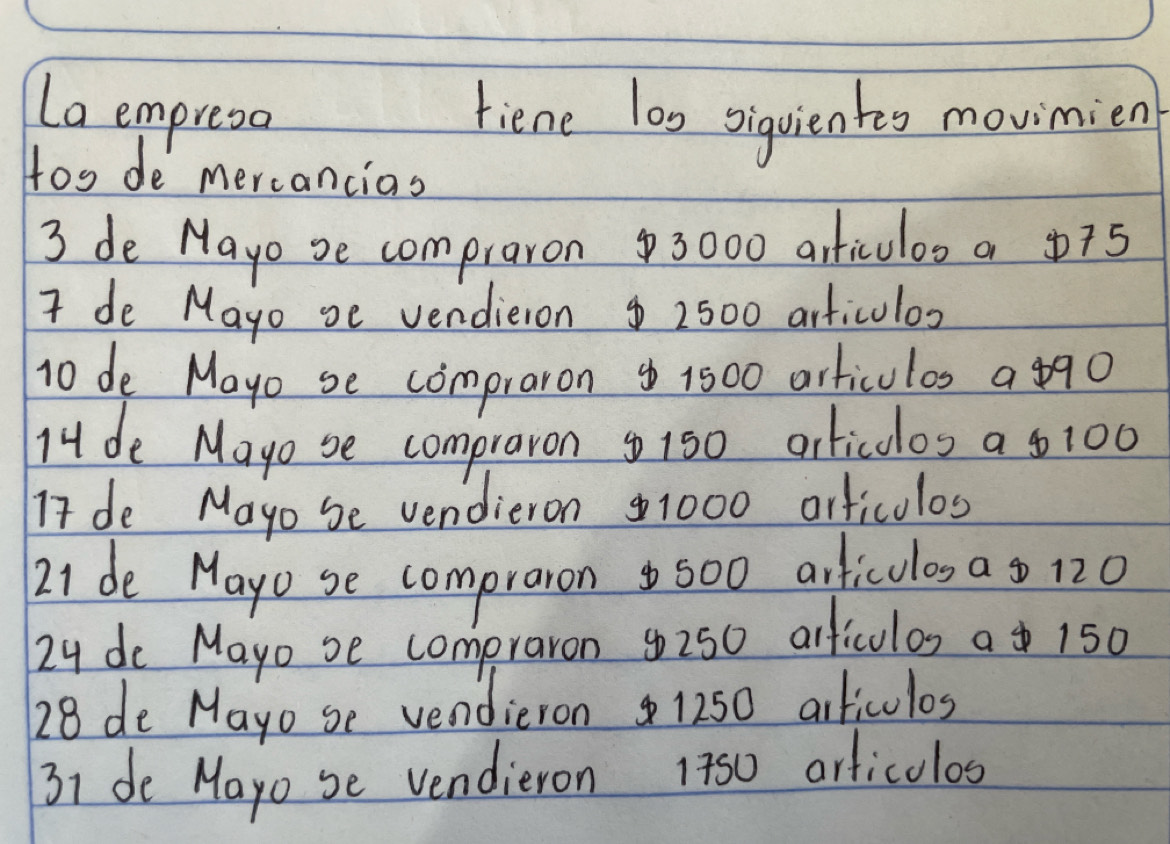 La empresa tiene los siguientes movimien-
tos de Mercancías
3 de Mayo se compraron $3000 articulos a $75
7 de Mayo se vendieron $ 2500 articulos
10 de Mayo se compraron $ 1500 articulos a $90
14 de Mayo se compraron $ 150 articulos a $100
17 de Mayo se vendieron $1000 artículos
21 de Mayo se compraron $ 500 artículos a $ 120
24 de Mayo se compraron $250 artículos a $ 150
28 de Mayo se vendieron $ 1250 artículos
31 de Mayo se vendieron 1750 articulos